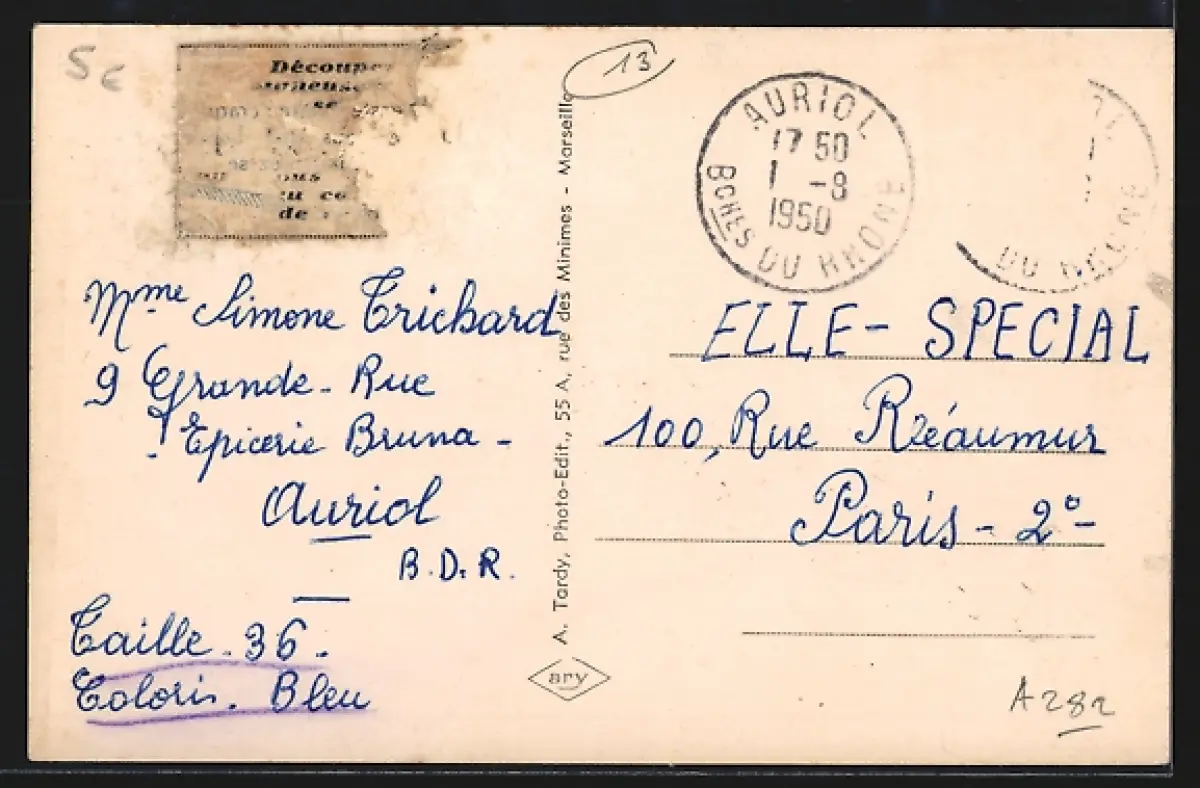 5€
Découpe
se
de
Mme Simone Trichard
9 Grande - Rue
Epicerie Bruna -
Auriol
B.D.R.
Taille - 36 -
Coloris - Bleu
A. Tardy, Photo-Edit., 55 A, rue des Minimes - Marseille
ary
13
AURIOL
17 50
1 -8
1950
BCHES DU RHONE
DU RHONE
ELLE - SPECIAL
100, Rue Réaumur
Paris - 2° -
A282